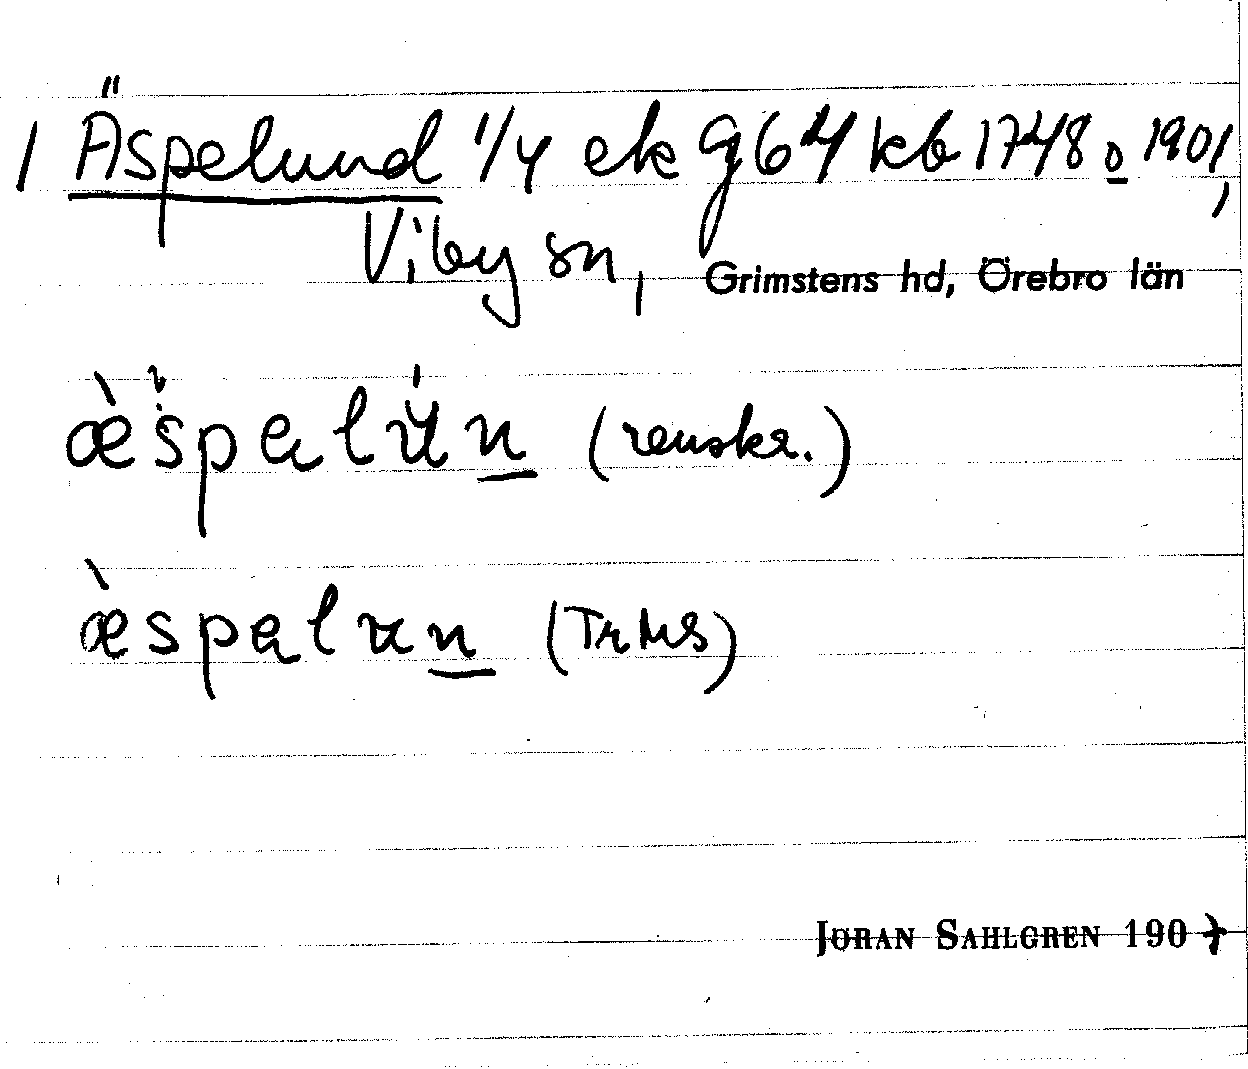 1 Äspelund 1/4 ek G 64 kb 1748 o 1901,
Viby sn, Grimstens hd, Örebro län
æ̀spəlún (renskr.)
æ̀spəlun (TrMS)
JÖRAN SAHLGREN 1907